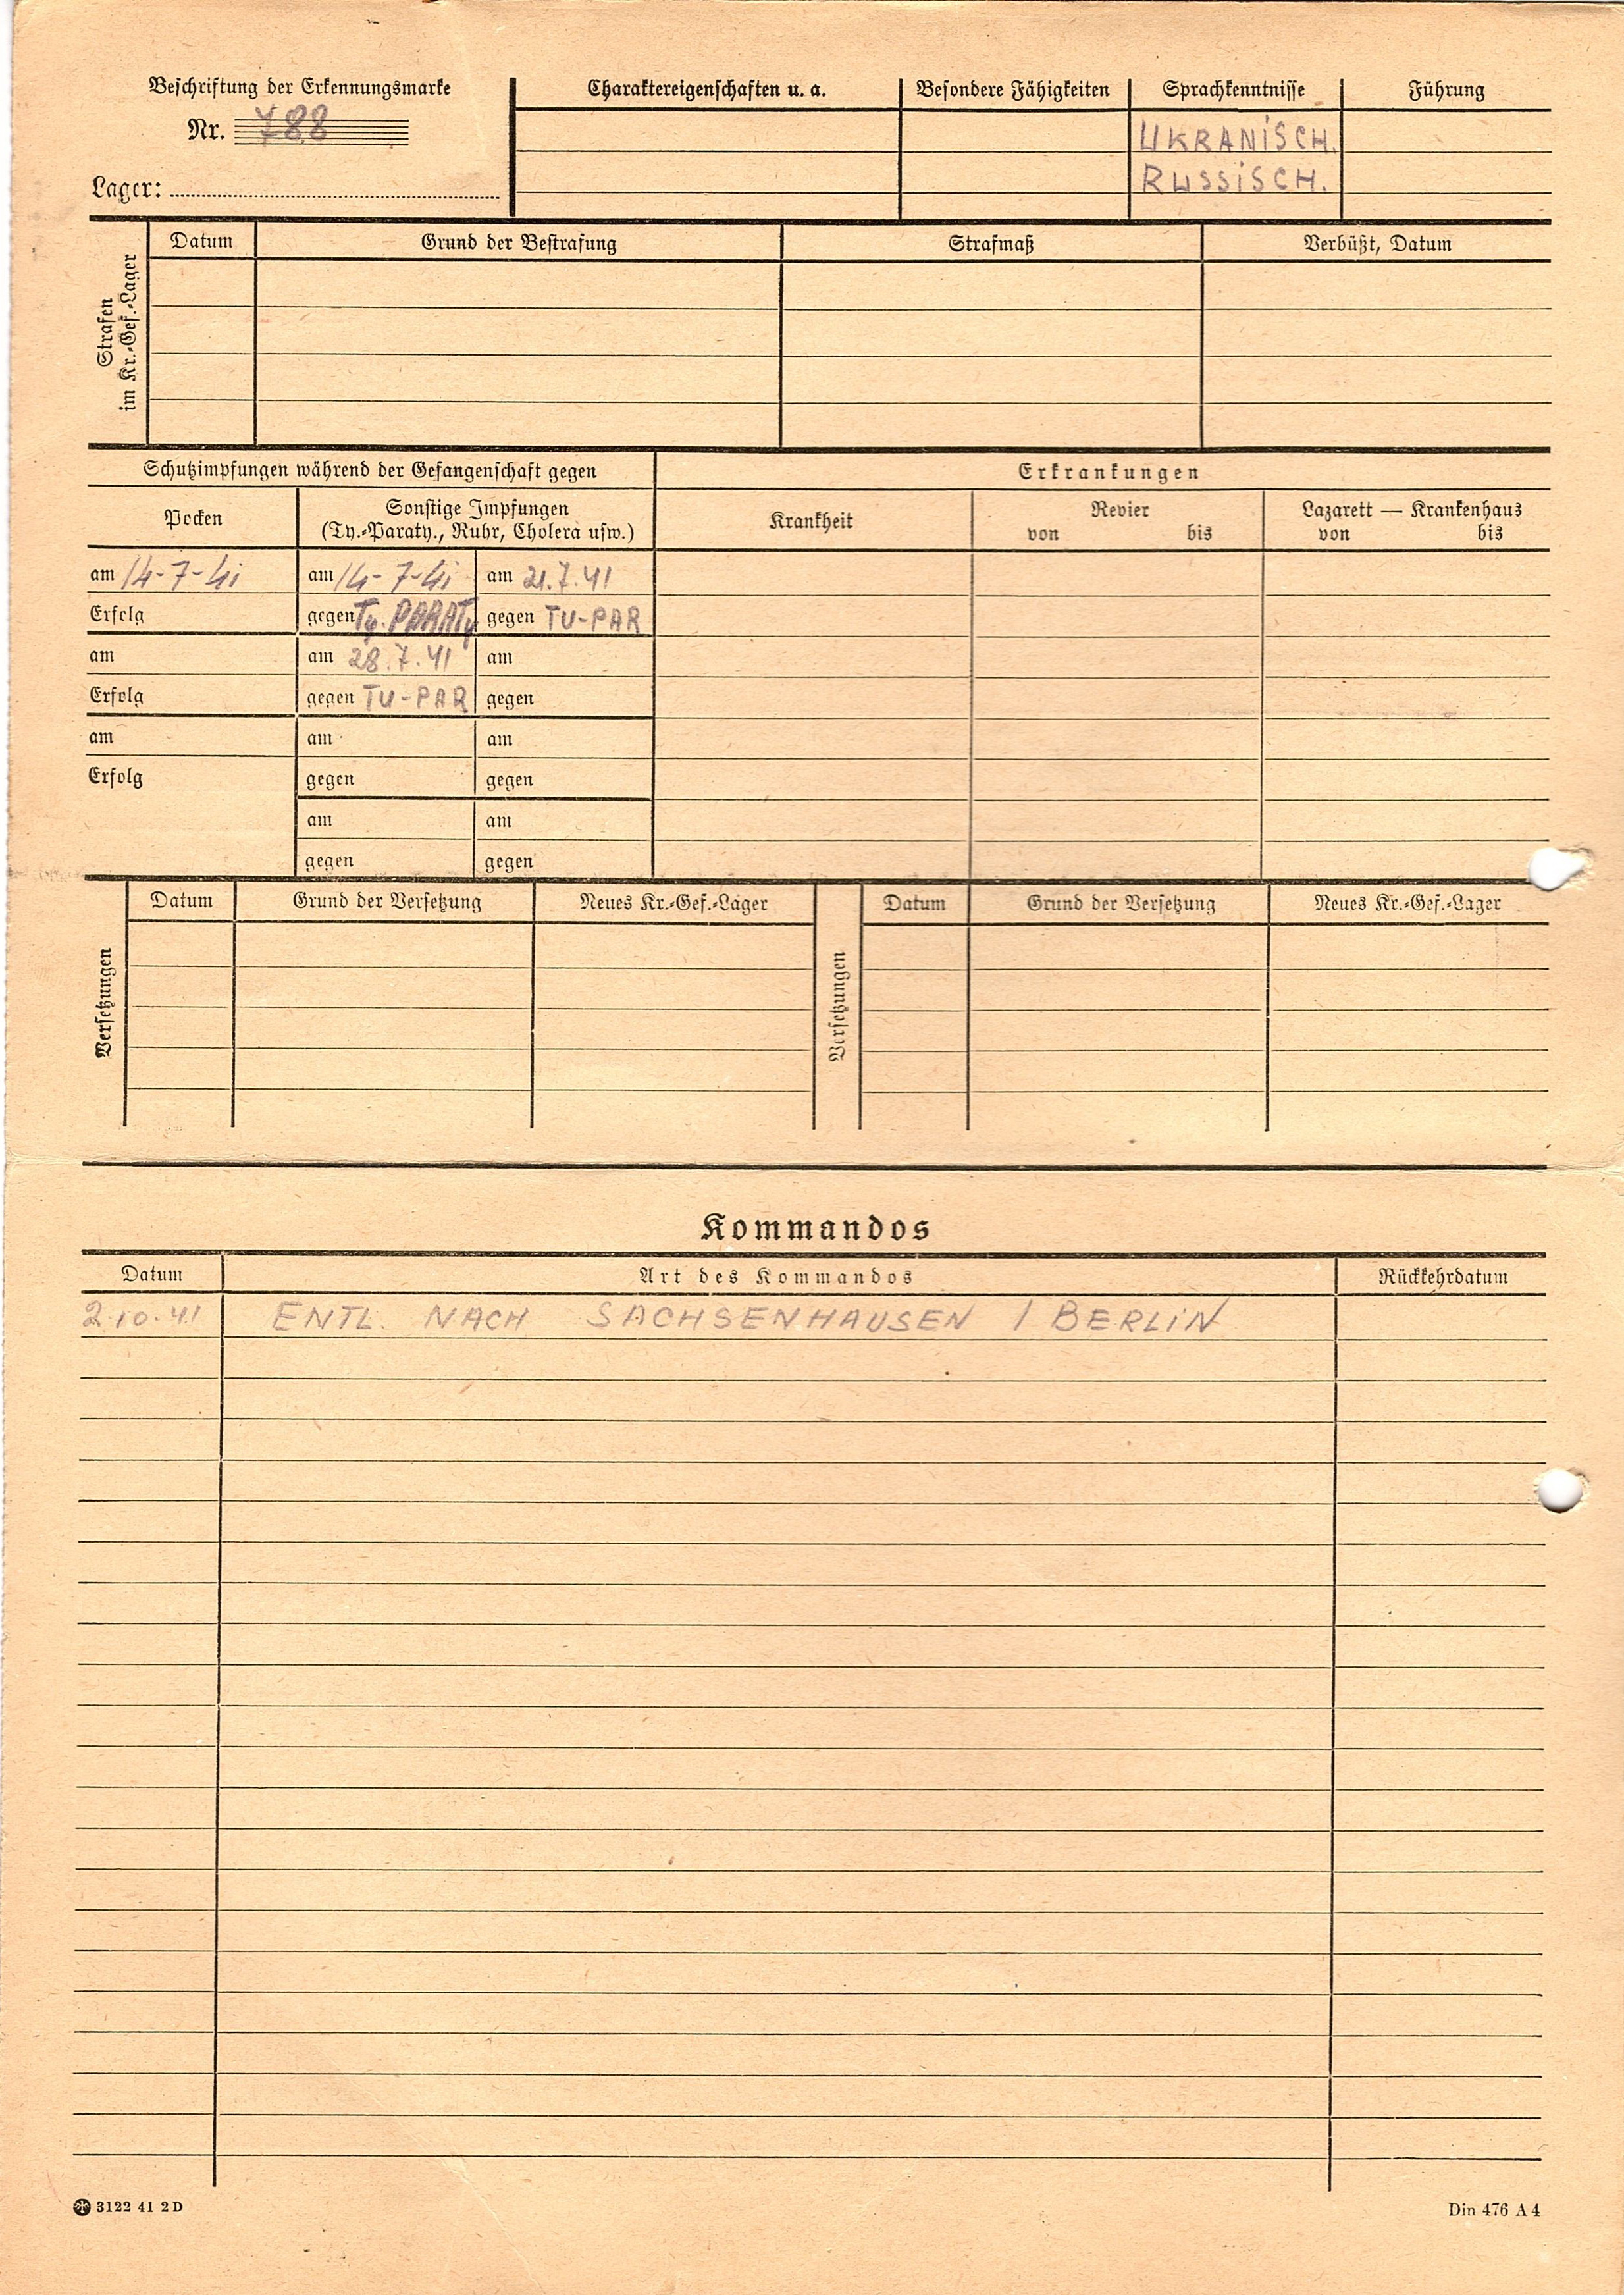 Beschriftung der Erkennungsmarke
Nr. 788
Lager:
Charaktereigenschaften u. a.
Besondere Fähigkeiten
Sprachkenntnisse
Führung
UKRANISCH.
RUSSISCH.
Strafen
im Kr.-Gef.-Lager
Datum
Grund der Bestrafung
Strafmaß
Verbüßt, Datum
Schutzimpfungen während der Gefangenschaft gegen
Erkrankungen
Pocken
Sonstige Impfungen
(Ty.-Paraty., Ruhr, Cholera usw.)
Krankheit
Revier
von bis
Lazarett — Krankenhaus
von bis
am 14-7-41 am 14-7-41 am 21.7.41
Erfolg gegen Ty. PARATy gegen TU-PAR
am am 28.7.41 am
Erfolg gegen TU-PAR gegen
am am am
Erfolg gegen gegen
am am
gegen gegen
Versetzungen
Datum Grund der Versetzung Neues Kr.-Gef.-Lager
Versetzungen
Datum Grund der Versetzung Neues Kr.-Gef.-Lager
Kommandos
Datum Art des Kommandos Rückkehrdatum
2.10.41 ENTL. NACH SACHSENHAUSEN / BERLIN
3122 41 2 D
Din 476 A 4